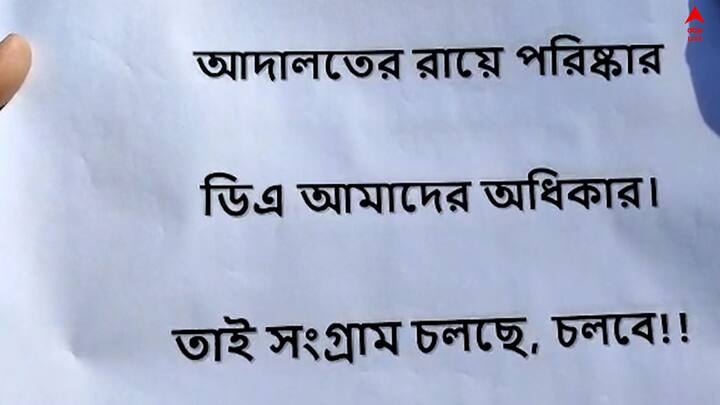 আদালতের রায়ে পরিষ্কার
ডিএ আমাদের অধিকার।
তাই সংগ্রাম চলছে, চলবে!!